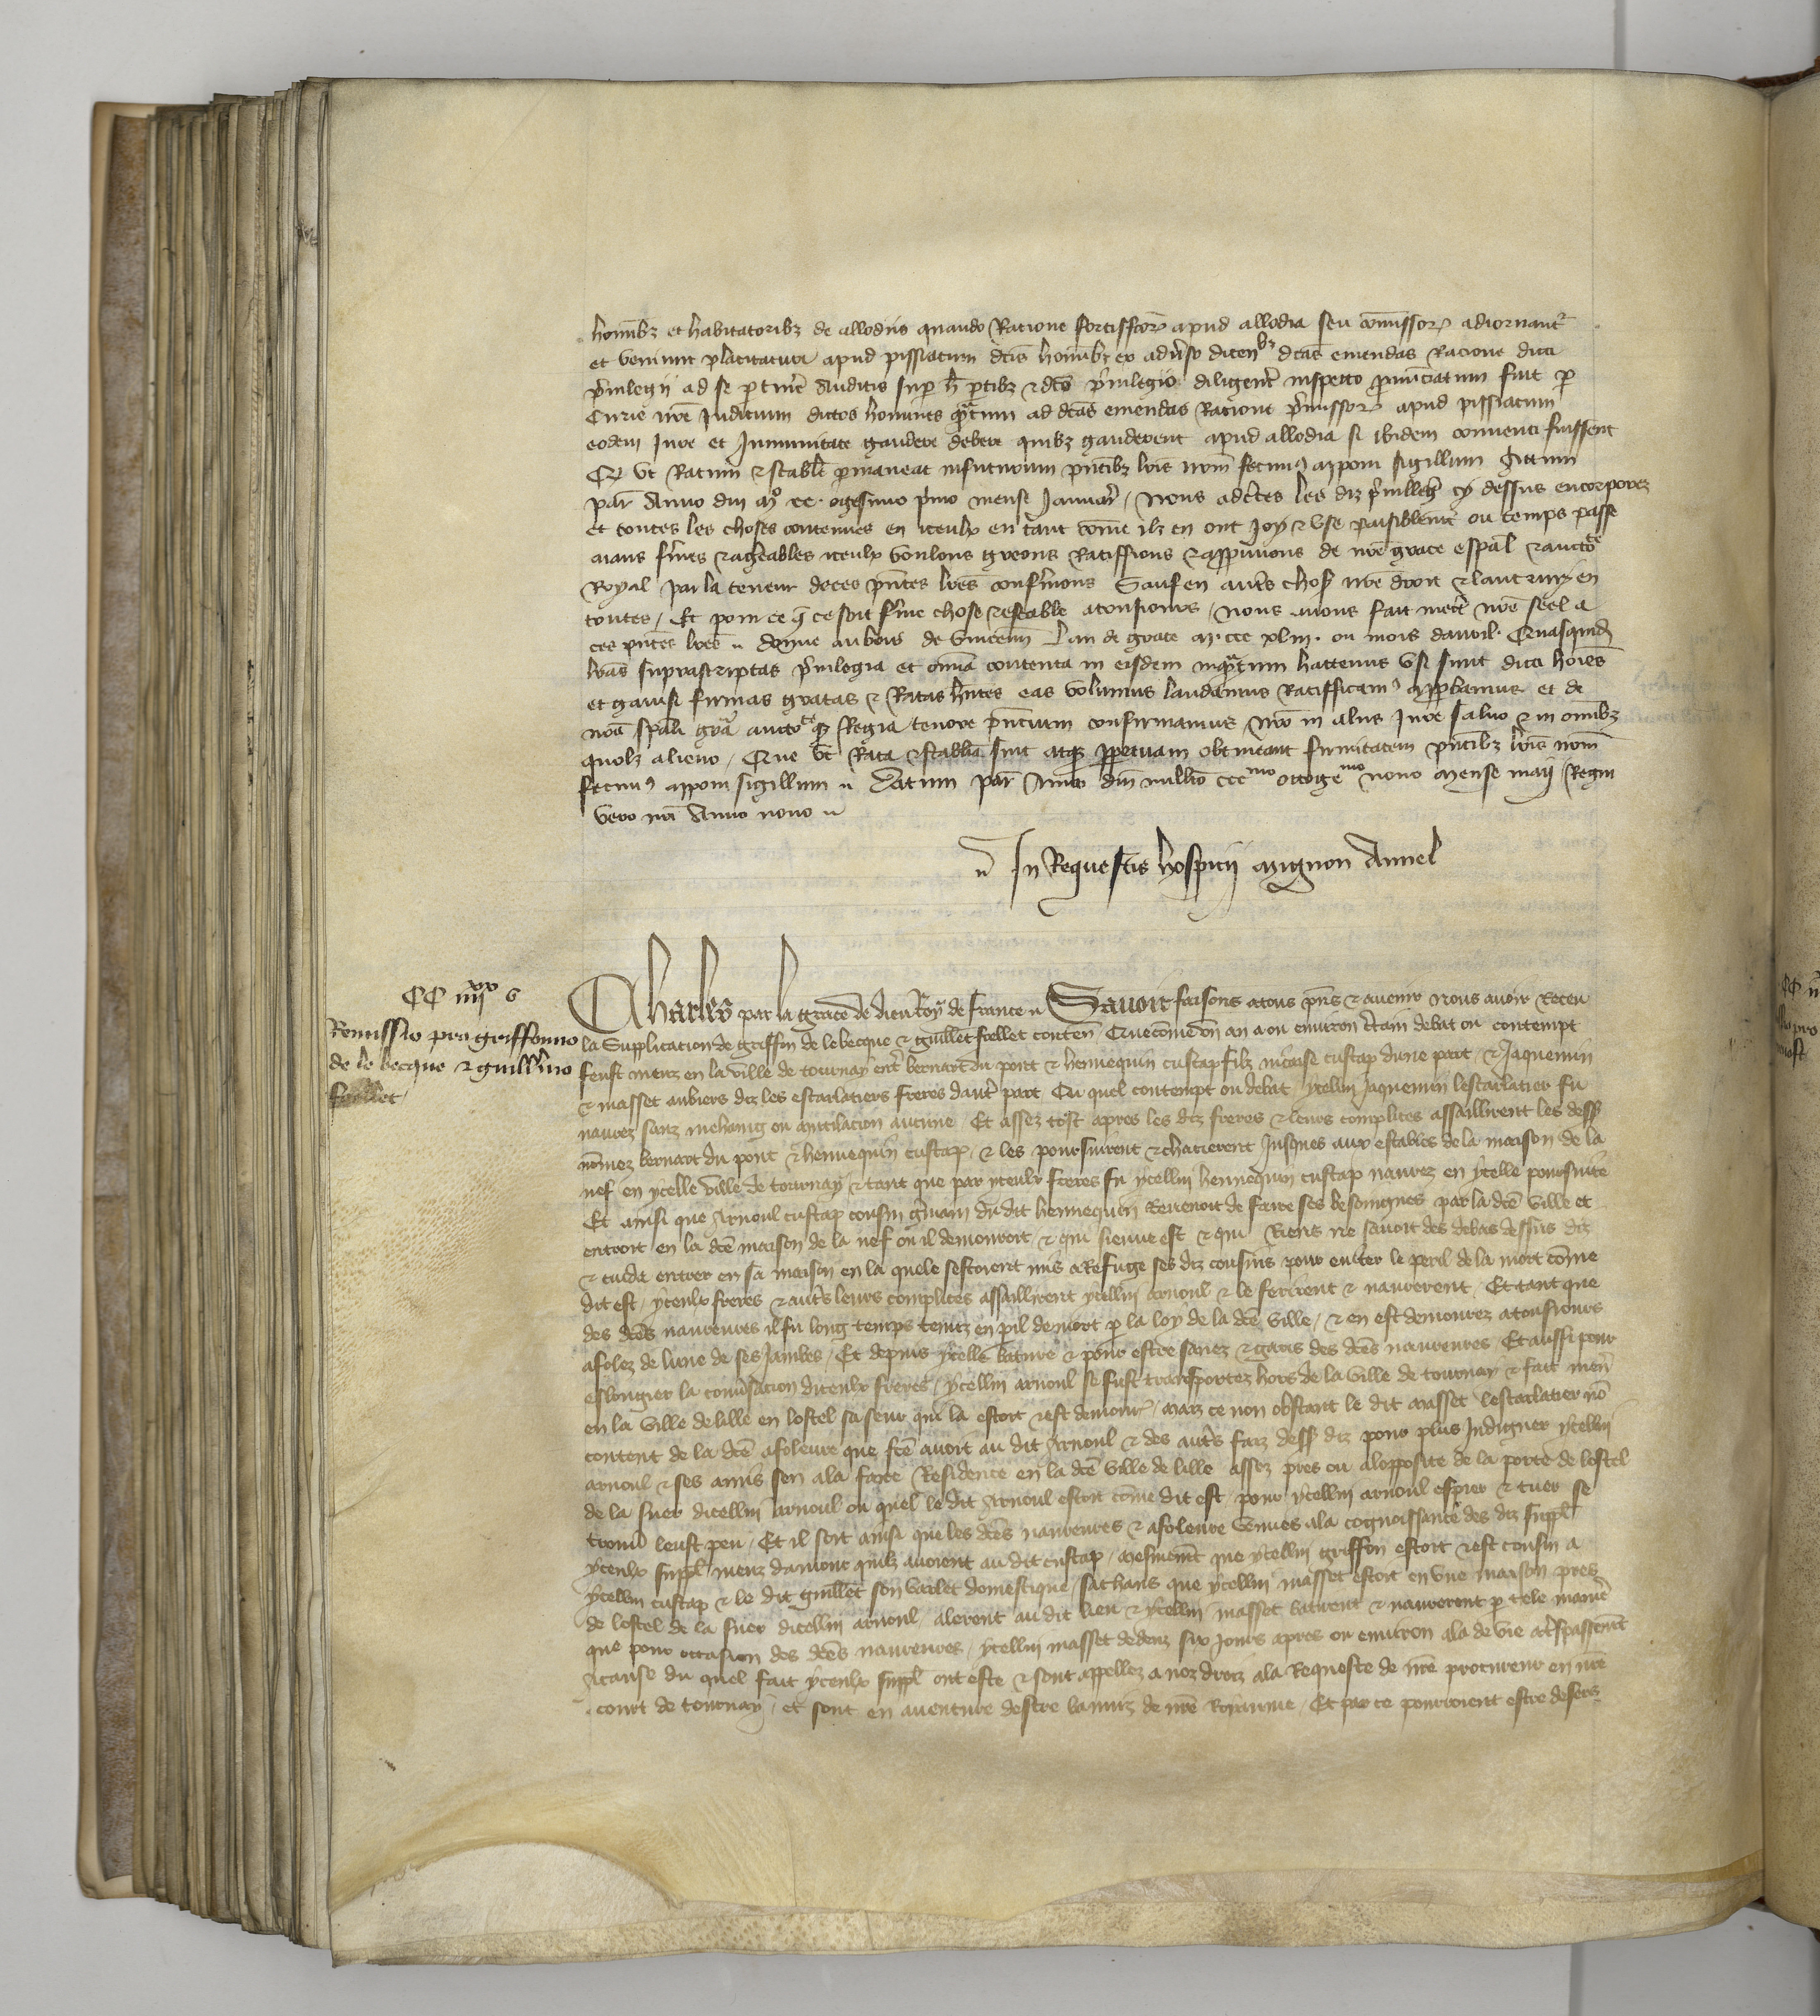 homībz et habitatoribz de allodiis quando Ratione forisfcōr apud allodia seu cōmissor adiornant᷑
et veniunt placitaturi apud pissiacum dc̄is homībz ex adūso dicen bz dc̄as emendas Racione dicti
pͥuilegii ad se ptin̄e Auditis sup h̄ ptibz & dc̄o pͥuilegio diligent᷑ inspecto pnūciatum fuit p
Curie nr̄e Judicium dictos homines qͣtum ad dc̄as emendas Racione pͥmissor apud pissiacum
eodem Jure et Immunitate gaudere debere quibz gauderent apud allodia si ibidem conuenti fuissent
Qd vt Ratum & stabile pmaneat in futurum pn̄tibz lr̄is nr̄m fecimꝰ apponi sigillum Actum
par Anno dn̄i mo cc. octogesimo pͥmo mense Januar̄ / Nous adc̄tes les diz pͥuilleḡ cy dessus encorporez
et toutes les choses contenues en iceulx en tant cōme ilz en ont Joy & vse paisiblem̄t ou temps passe
aians f̄mes & ag̈eables iceulx voulons greons Ratiffions & appͫuuons de nr̄e grace esp̄al & aucto te
Royal par la teneur de ces pn̄tes lr̄es conf̄mons Sauf en aut̄s chosꝭ nr̄e droit & lautruy en
toutes / Et pour ce q̄ ce soit f̄me chose & estable a tousiours / nous auons fait mect̄ nr̄e seel a
ces pn̄tes lr̄es  donne au bois de vincenn̄ Lan de grace m. ccc xliii. ou mois dauril. Quasquid
lr̄as suprascriptas pͥuilegia et oīa contenta in eisdem inqͣtum hactenus vsi sunt dicti hoīes
et gauisi firmas gratas & Ratas hn̄tes eas volumus laudamus Ratifficamꝰ appͫbamus et de
nr̄a sp̄ali grā aucto te qz Regia tenore pn̄cium confirmamus nr̄o in aliis Jure saluo & in om̄ibz
quolz alieno / Que vt Rata & stabilia sint atqz ppetuam obtineant firmitatem pn̄tibz lr̄is nr̄m
fecimꝰ apponi sigillum  Datum par Anno dn̄i mill̄o ccc mo octoge mo nono mense maij Regni
vero nr̄i Anno nono
In Requestis hospicij mignon Annel
CC iiii xx 6
Remissio pro griffonno
de le becque & guill̄mo
foellet
Charles par la grace de dieu Roy de France  Sauoir faisons a tous pn̄s & auenir nous auoir Receu
la Supplicacion de griffin de le becque & guillet foellet conten̄ Que cōme on an a ou enuiron c̄tain debat ou contempt
feust meuz en la ville de tournay ent̄ bernart du pont & hennequin custap filz macse custap dune part / & Jaquemin
& masset aubiers diz les escarlatiers freres daut̄ part Cu quel contempt ou debat ycellui Jaquemin lescarlatier fu
naurez sanz mehaing ou mutilacion aucune Et assez tost apres les diz freres & leurs complices assaillirent les dessꝰ
nōmez bernart du pont & hennequin custap / & les poursuirent & chacierent Jusques aux estables de la maison de la
nef en ycelle ville de tournay & tant que par yceulx freres fu ycellui hennequin custap naurez en ycelle poursuite
Et ainsi que Arnoul custap cousin ḡmain du dit hennequin Reuenoit de faire ses besoingnes par la dc̄e ville et
entroit en la dc̄e maison de la nef ou il demouroit & qui sienne est & qui Riens ne sauoit des debas dessus diz
& cuida entrer en sa maison en la quele sestoient mis a Refuge ses diz cousins pour euiter le peril de la mort cōme
dit est / yceulx freres & aut̄s leurs complices assaillirent ycellui arnoul & le ferirent & naurerent / Et tant que
des dc̄es naureures il fu long temps tenuz en pil de mort p la loy de la dc̄e ville / & en est demourez a tousiours
afolez de lune de ses Jambes / Et depuis ycelle bature & pour estre sanez & garis des dc̄es naureures Et aussi pour
eslongier la conūsacion diceulx freres / ycellui arnoul se fust transportez hors de la ville de tournay & fait men̄
en la ville de lille en lostel sa seur qui la estoit & est demour̄ / maiz ce non obstant le dit masset lescarlatier nō
content de la dc̄e afoleure que fc̄e auoit au dit Arnoul & des aut̄s faiz dessꝰ diz pour plus Indigner ycellui
arnoul & ses amis sen ala faire Residence en la dc̄e ville de lille assez pres ou a lopposite de la porte de lostel
de la suer dicellui arnoul ou quel le dit Arnoul estoit cōme dit est / pour ycellui arnoul espier & tuer se
trouū leust peu / Et il soit ainsi que les dc̄es naureures & afoleure venues a la cognoissance des diz suppl̄
yceulx suppl̄ meuz damour quilz auoient au dit custap / mesmem̄t que ycellui griffon estoit & est cousin a
ycellui custap & le dit guillet son varlet domestique / sachans que ycellui masset estoit en vne maison pres
de lostel de la suer dicellui arnoul / alerent au dit lieu & ycellui masset batirent & naurerent p tele manie᷑
que pour occasion des dc̄es naureures / ycellui masset dedenz six Jours apres ou enuiron ala de vie a t̄spassem̄t
A cause du quel fait yceulx suppl̄ ont este & sont appellez a noz droiz a la Requeste de nr̄e procureur en nr̄e
court de tournay / et sont en auenture destre banniz de nr̄e Royaume / Et par ce pourroient estre desers